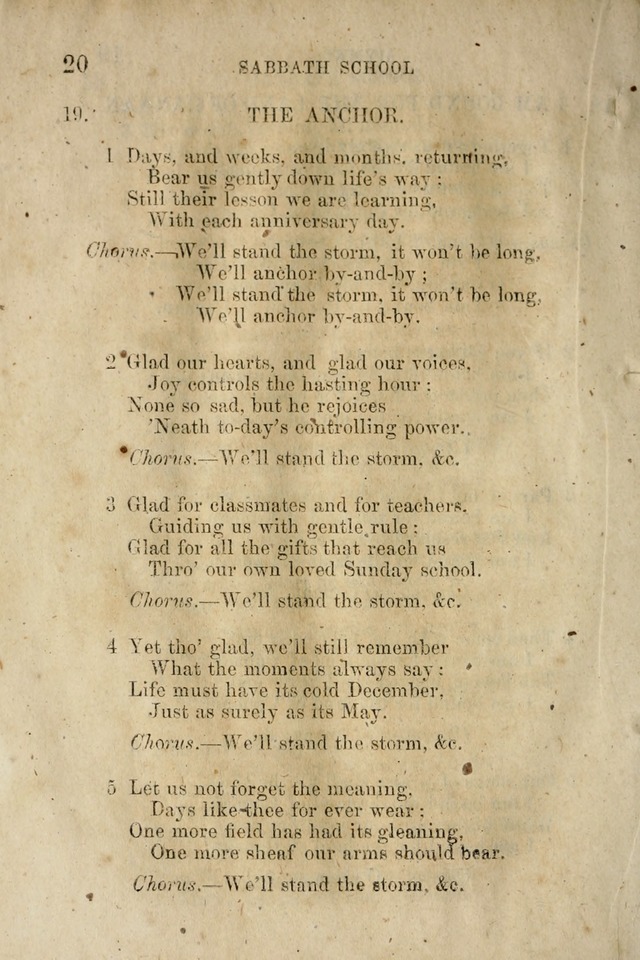 20 SABBATH SCHOOL
19. THE ANCHOR.
1 Days, and weeks, and months, returning,
Bear us gently down life's way :
Still their lesson we are learning,
With each anniversary day.
Chorus.—We'll stand the storm, it won't be long,
We'll anchor by-and-by ;
We'll stand the storm, it won't be long,
We'll anchor by-and-by.
2 Glad our hearts, and glad our voices,
Joy controls the hasting hour :
None so sad, but he rejoices
'Neath to-day's controlling power.
Chorus.—We'll stand the storm, &c.
3 Glad for classmates and for teachers,
Guiding us with gentle rule :
Glad for all the gifts that reach us
Thro' our own loved Sunday school.
Chorus.—We'll stand the storm, &c.
4 Yet tho' glad, we'll still remember
What the moments always say :
Life must have its cold December,
Just as surely as its May.
Chorus.—We'll stand the storm, &c.
5 Let us not forget the meaning,
Days like thee for ever wear ;
One more field has had its gleaning,
One more sheaf our arms should bear.
Chorus.—We'll stand the storm, &c.